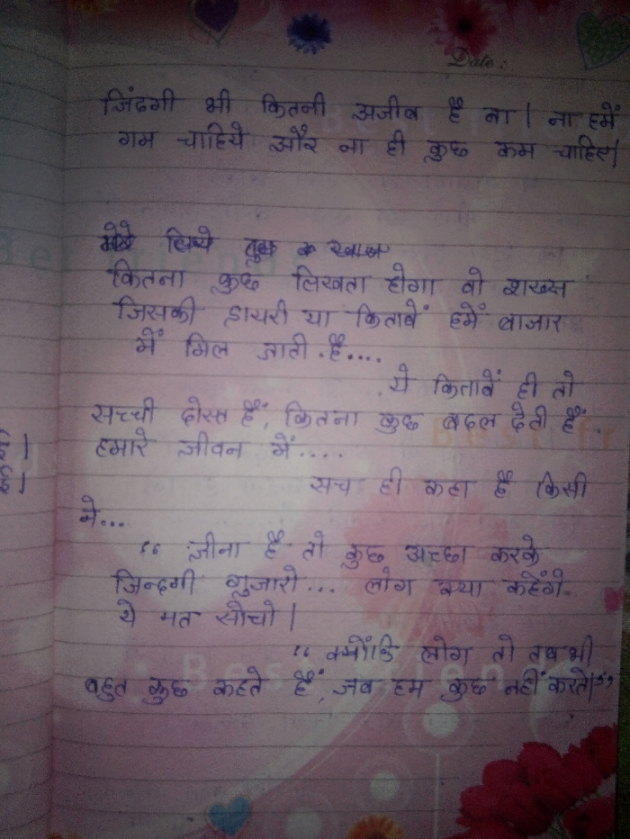 Date:
जिंदगी भी कितनी अजीब है ना। ना हमें
गम चाहिये और ना ही कुछ कम चाहिए।
लिये
कितना कुछ लिखता होगा वो शख्स
जिसकी डायरी या किताबें हमें बाजार
में मिल जाती है....
ये किताबें ही तो
सच्ची दोस्त हैं, कितना कुछ बदल देती हैं
हमारे जीवन में....
सच ही कहा है किसी
ने...
“ जीना है तो कुछ अच्छा करके
जिन्दगी गुजारो... लोग क्या कहेंगे.
ये मत सोचो।
“ क्योंकि लोग तो तब भी
बहुत कुछ कहते हैं, जब हम कुछ नहीं करते।”
Best friends